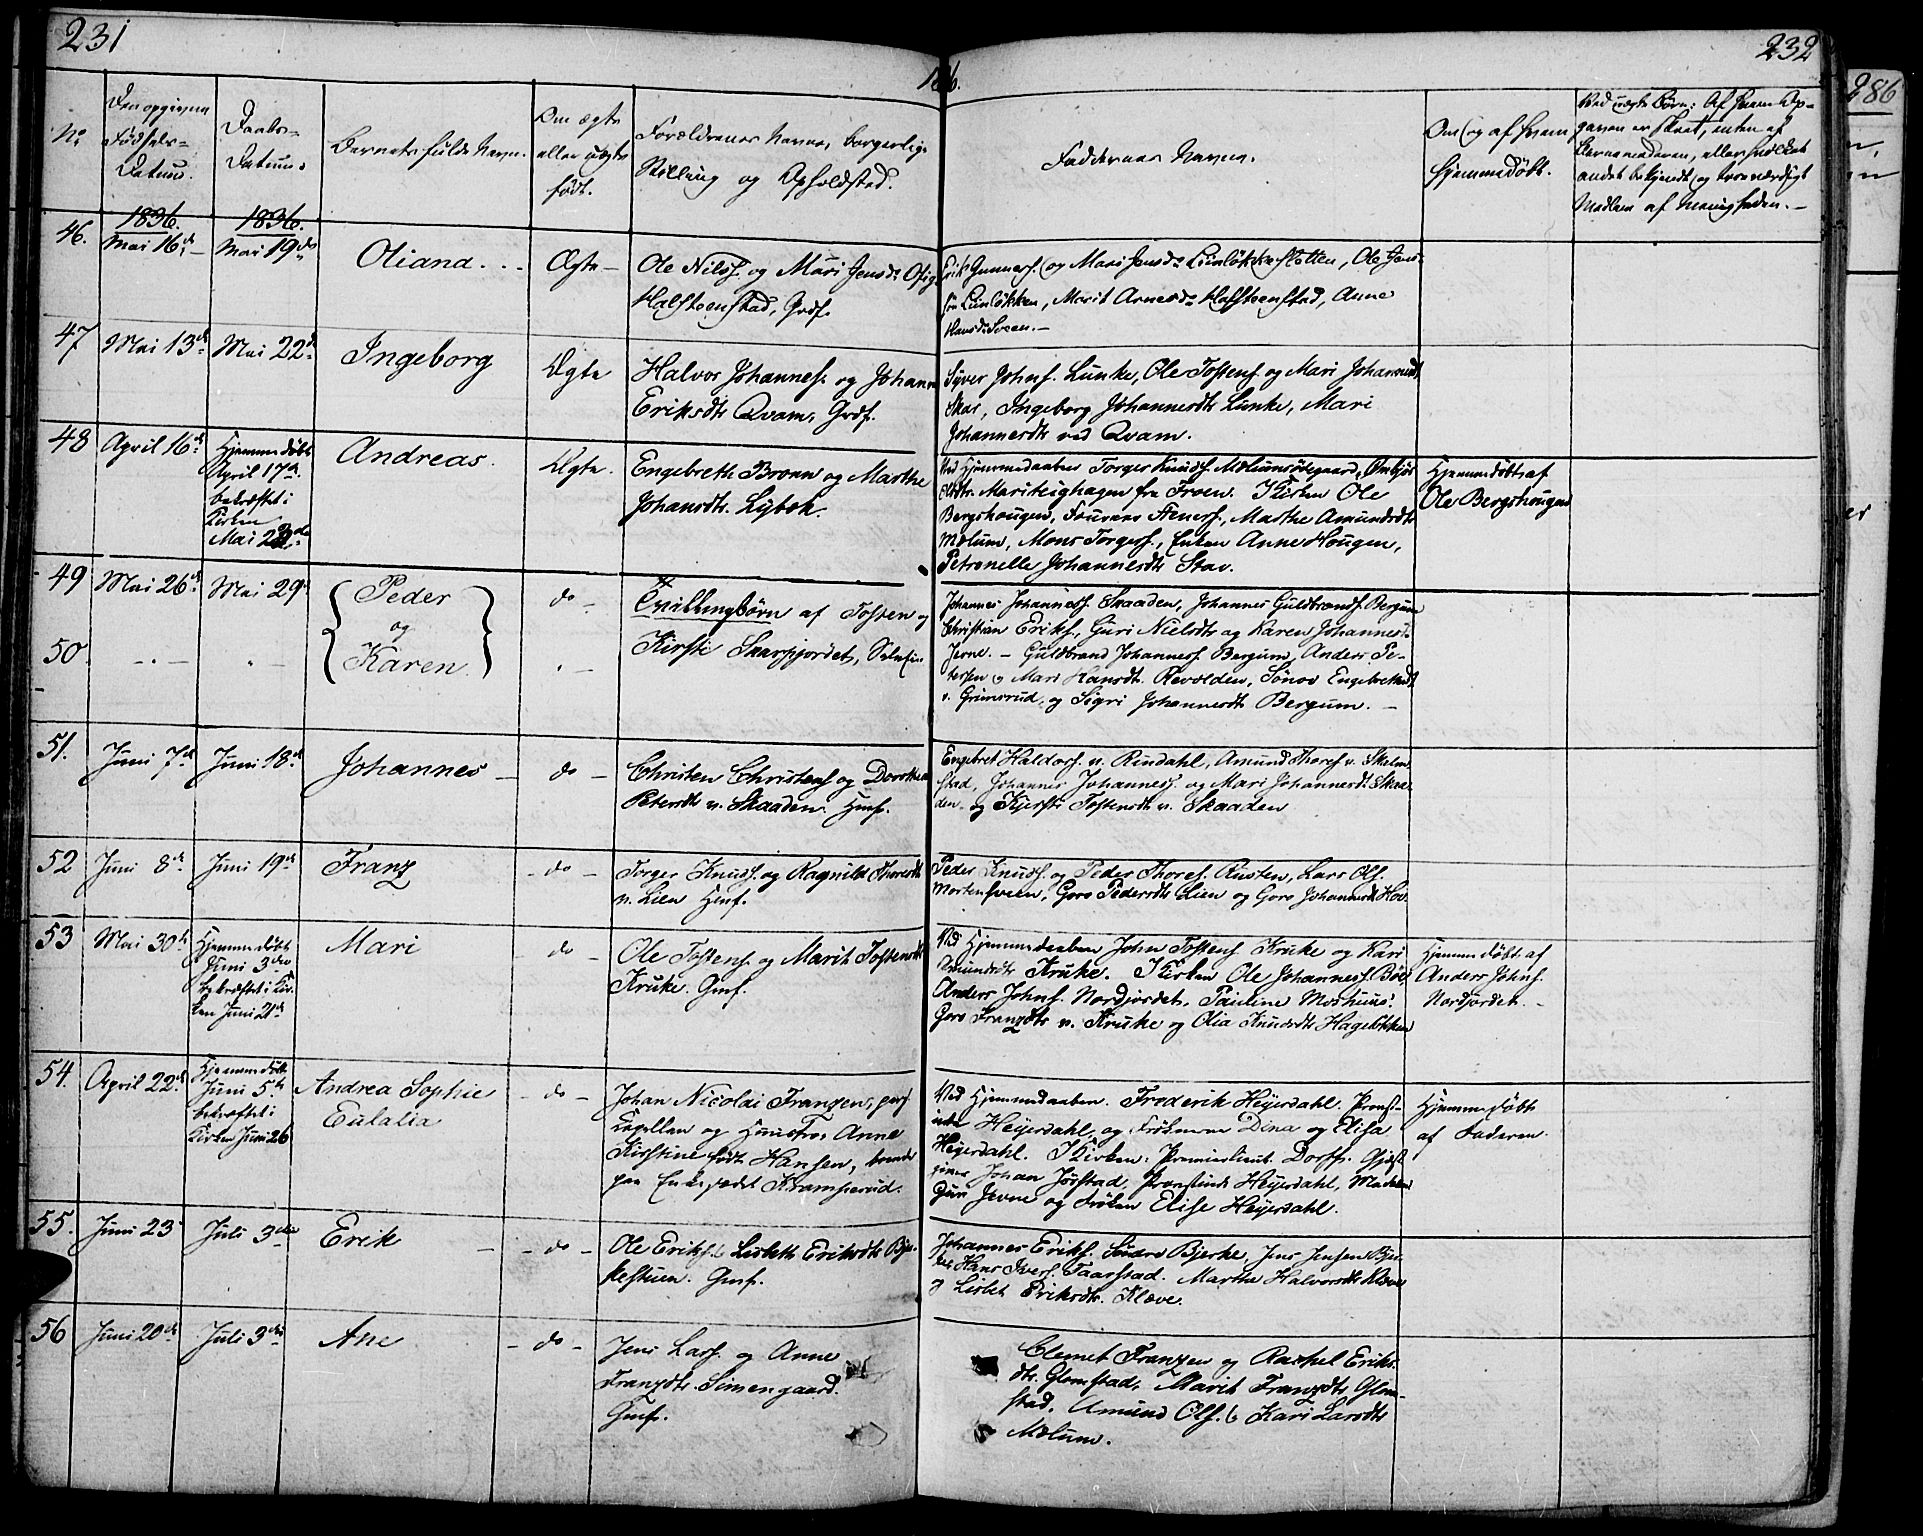 231
232
286
No
Den opgivne Fødsels-Datum.
Daabs-Datum.
Barnets fulde Navn.
Om ægte eller uægte født.
Forældrenes Navne, borgerlige Stilling og Opholdsted.
Faddernes Navne.
Om og af hvem hjemmedöbt.
46.
1836.
Mai 16de
1836.
Mai 19de
Oliana
Ægte
Ole Nilss. og Mari Jensdr
Halsteenstad, Grdf.
Erik Gunners. og Mari Jensdr
Marit Arnesdr Halsteenstad, Anne
47
Mai 13de
Mai 22de
Ingeborg
Ægte
Halvor Johannes. og Johanne
Eriksdtr Qvam. Grdf.
Syver Johns. Lunke, Ole Tostens. og Mari Johannesdt
Skar, Ingeborg Johannesdtr Lunke, Mari
Johannesdtr ved Qvam.
48
April 16de
Hjemmedøbt
April 17de
bekræftet i
Kirken
Mai 22de
Andreas.
Ægte.
Engebreth Bronn og Marthe
Johansdtr. Lybek.
Ved Hjemmedaaben Torger Knuds.
fra Froen. I Kirken Ole
Bergshougen, Steners., Marthe Amundsdtr
Mælum, Mons Torgers., Enken Anne Hougen,
Petronelle Johannesdtr Stav.
Hjemmedöbt af
Ole Bergshougen
49
Mai 26de
Mai 29de
Peder
og
do
Tvillingbörn af Tosten og
50.
Karen
Kirsti Skarpjordet,
Johannes Johanness. Skaaden, Johannes Guldbrands. Bergum
Christian Eriks., Guri Nielsdtr og Karen Johannesd.
Jevne. – Guldbrand Johanness. Bergum, Anders Pe-
tersen og Mari Hansdt. Revolden, Sönov Engebretsd.
v. Grimsrud, og Sigri Johannesdtr Bergum. –
51.
Juni 7de
Juni 18de
Johannes
do
Christen Christens. og Dorothea
Petersdtr v. Skaaden. Huusf.
Engebret Haldors. v. Rindahl, Amund Thores. v. Skelm-
stad, Johannes Johanness. og Mari Johannesdt. Skaa-
den og Kjersti Tostensdt v. Skaaden
52
Juni 8de
Juni 19de
Franz
do
Torger Knuds. og Ragnild Thoresdtr
v. Lien Huusf.
Peder Knuds. og Peder Thores. Rusten, Lars Ols.
Mortensveen, Goro Pedersdtr Lien og Goro Johannesdt Hov.
53
Mai 30te
Hjemmedøbt
Juni 3die
bekræftet i Kir-
ken Juni 21de
Mari
do
Ole Tostens. og Marit Tostensdtr
Kruke. Gmf.
Ved Hjemmedaaben John Tostens. Kruke og Kari
Amundsdtr Kruke. I Kirken Ole Johanness. Böe,
Anders Johns. Nordjordet, Pauline Moshuus.
Goro Franzdtr v. Kruke og Olia Knudsdtr Hagelökken
Hjemmedöbt af
Anders Johns.
Nordjordet.
54.
April 22de
Hjemmedøbt
Juni 5te
bekræftet i
Kirken Juni 26
Andrea Sophie
Eulalia
do
Johan Nicolai Franzen, pers.
Capellan og Hustrue Anne
Kirstine født Hansen, boende
paa Enkesædet Kramperud.
Ved Hjemmedaaben. Frederik Heyerdahl. Provst-
inde Heyerdahl, og Frökenerne Dina og Elisa
Heyerdahl. I Kirken: Premierlieut. Dorff. Gjæst-
giver Johan Jörstad, Provstinde Heyerdahl, Madame
Guri Jevne og Fröken Elise Heyerdahl.
Hjemmedöbt
af Faderen.
55.
Juni 23
Juli 3die
Erik
do
Ole Eriks. & Lisbeth Eriksdtr Bjer-
kestuen. Gmf.
Johannes Eriks. Söndre Bjerke, Jens Jensen Bjer-
ke, Hans Ivers. Taarstad. Marthe Halvorsdtr Klæve
og Lisbet Eriksdtr. Klæve.
56
Juni 20de
Juli 3die
Ane
do
Jens Lars. og Anne
Franzdtr. Simengaard.
Gmf.
Clemet Franzen og Rachel Eriks-
dtr. Glomstad, Marit Franzdtr Glom-
stad, Amund Ols. & Kari Larsdtr
Mælum.